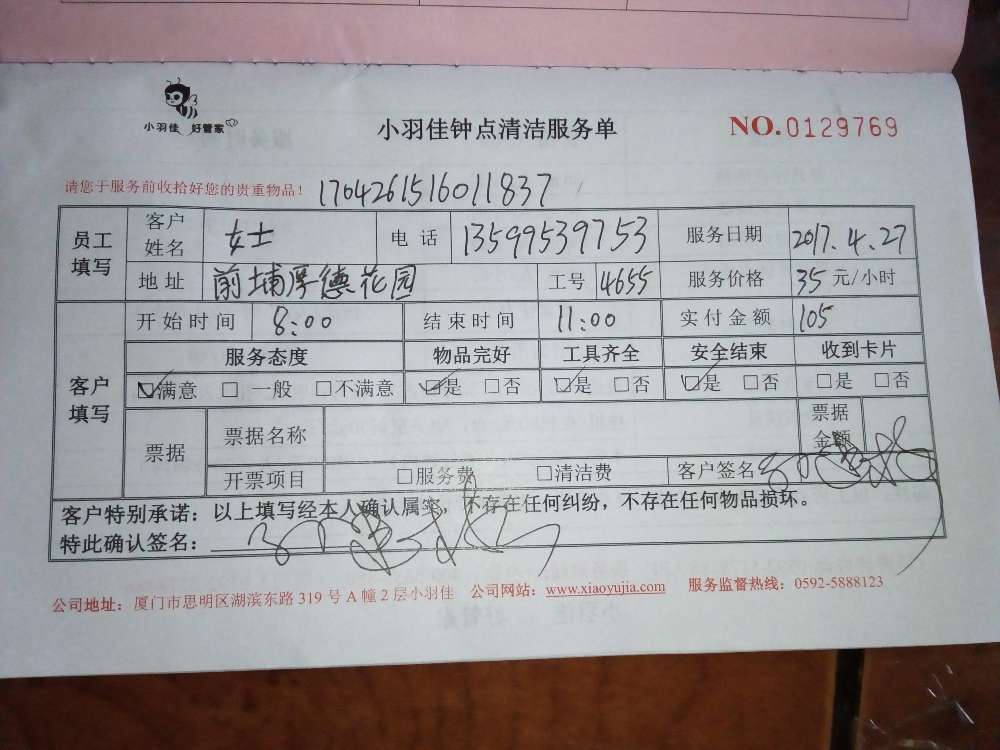 小羽佳 好管家
小羽佳钟点清洁服务单
NO.0129769
请您于服务前收拾好您的贵重物品！ 1704261516011837
员工填写 客户姓名 女士 电话 13599539753 服务日期 2017.4.27
地址 前埔厚德花园 工号 4655 服务价格 35 元/小时
客户填写 开始时间 8:00 结束时间 11:00 实付金额 105
服务态度 物品完好 工具齐全 安全结束 收到卡片
☑满意 □一般 □不满意 ☑是 □否 ☑是 □否 ☑是 □否 □是 □否
票据 票据名称 票据金额
开票项目 □服务费 □清洁费 客户签名
客户特别承诺：以上填写经本人确认属实，不存在任何纠纷，不存在任何物品损坏。
特此确认签名：
公司地址：厦门市思明区湖滨东路 319 号 A 幢 2 层小羽佳 公司网站：www.xiaoyujia.com 服务监督热线：0592-5888123